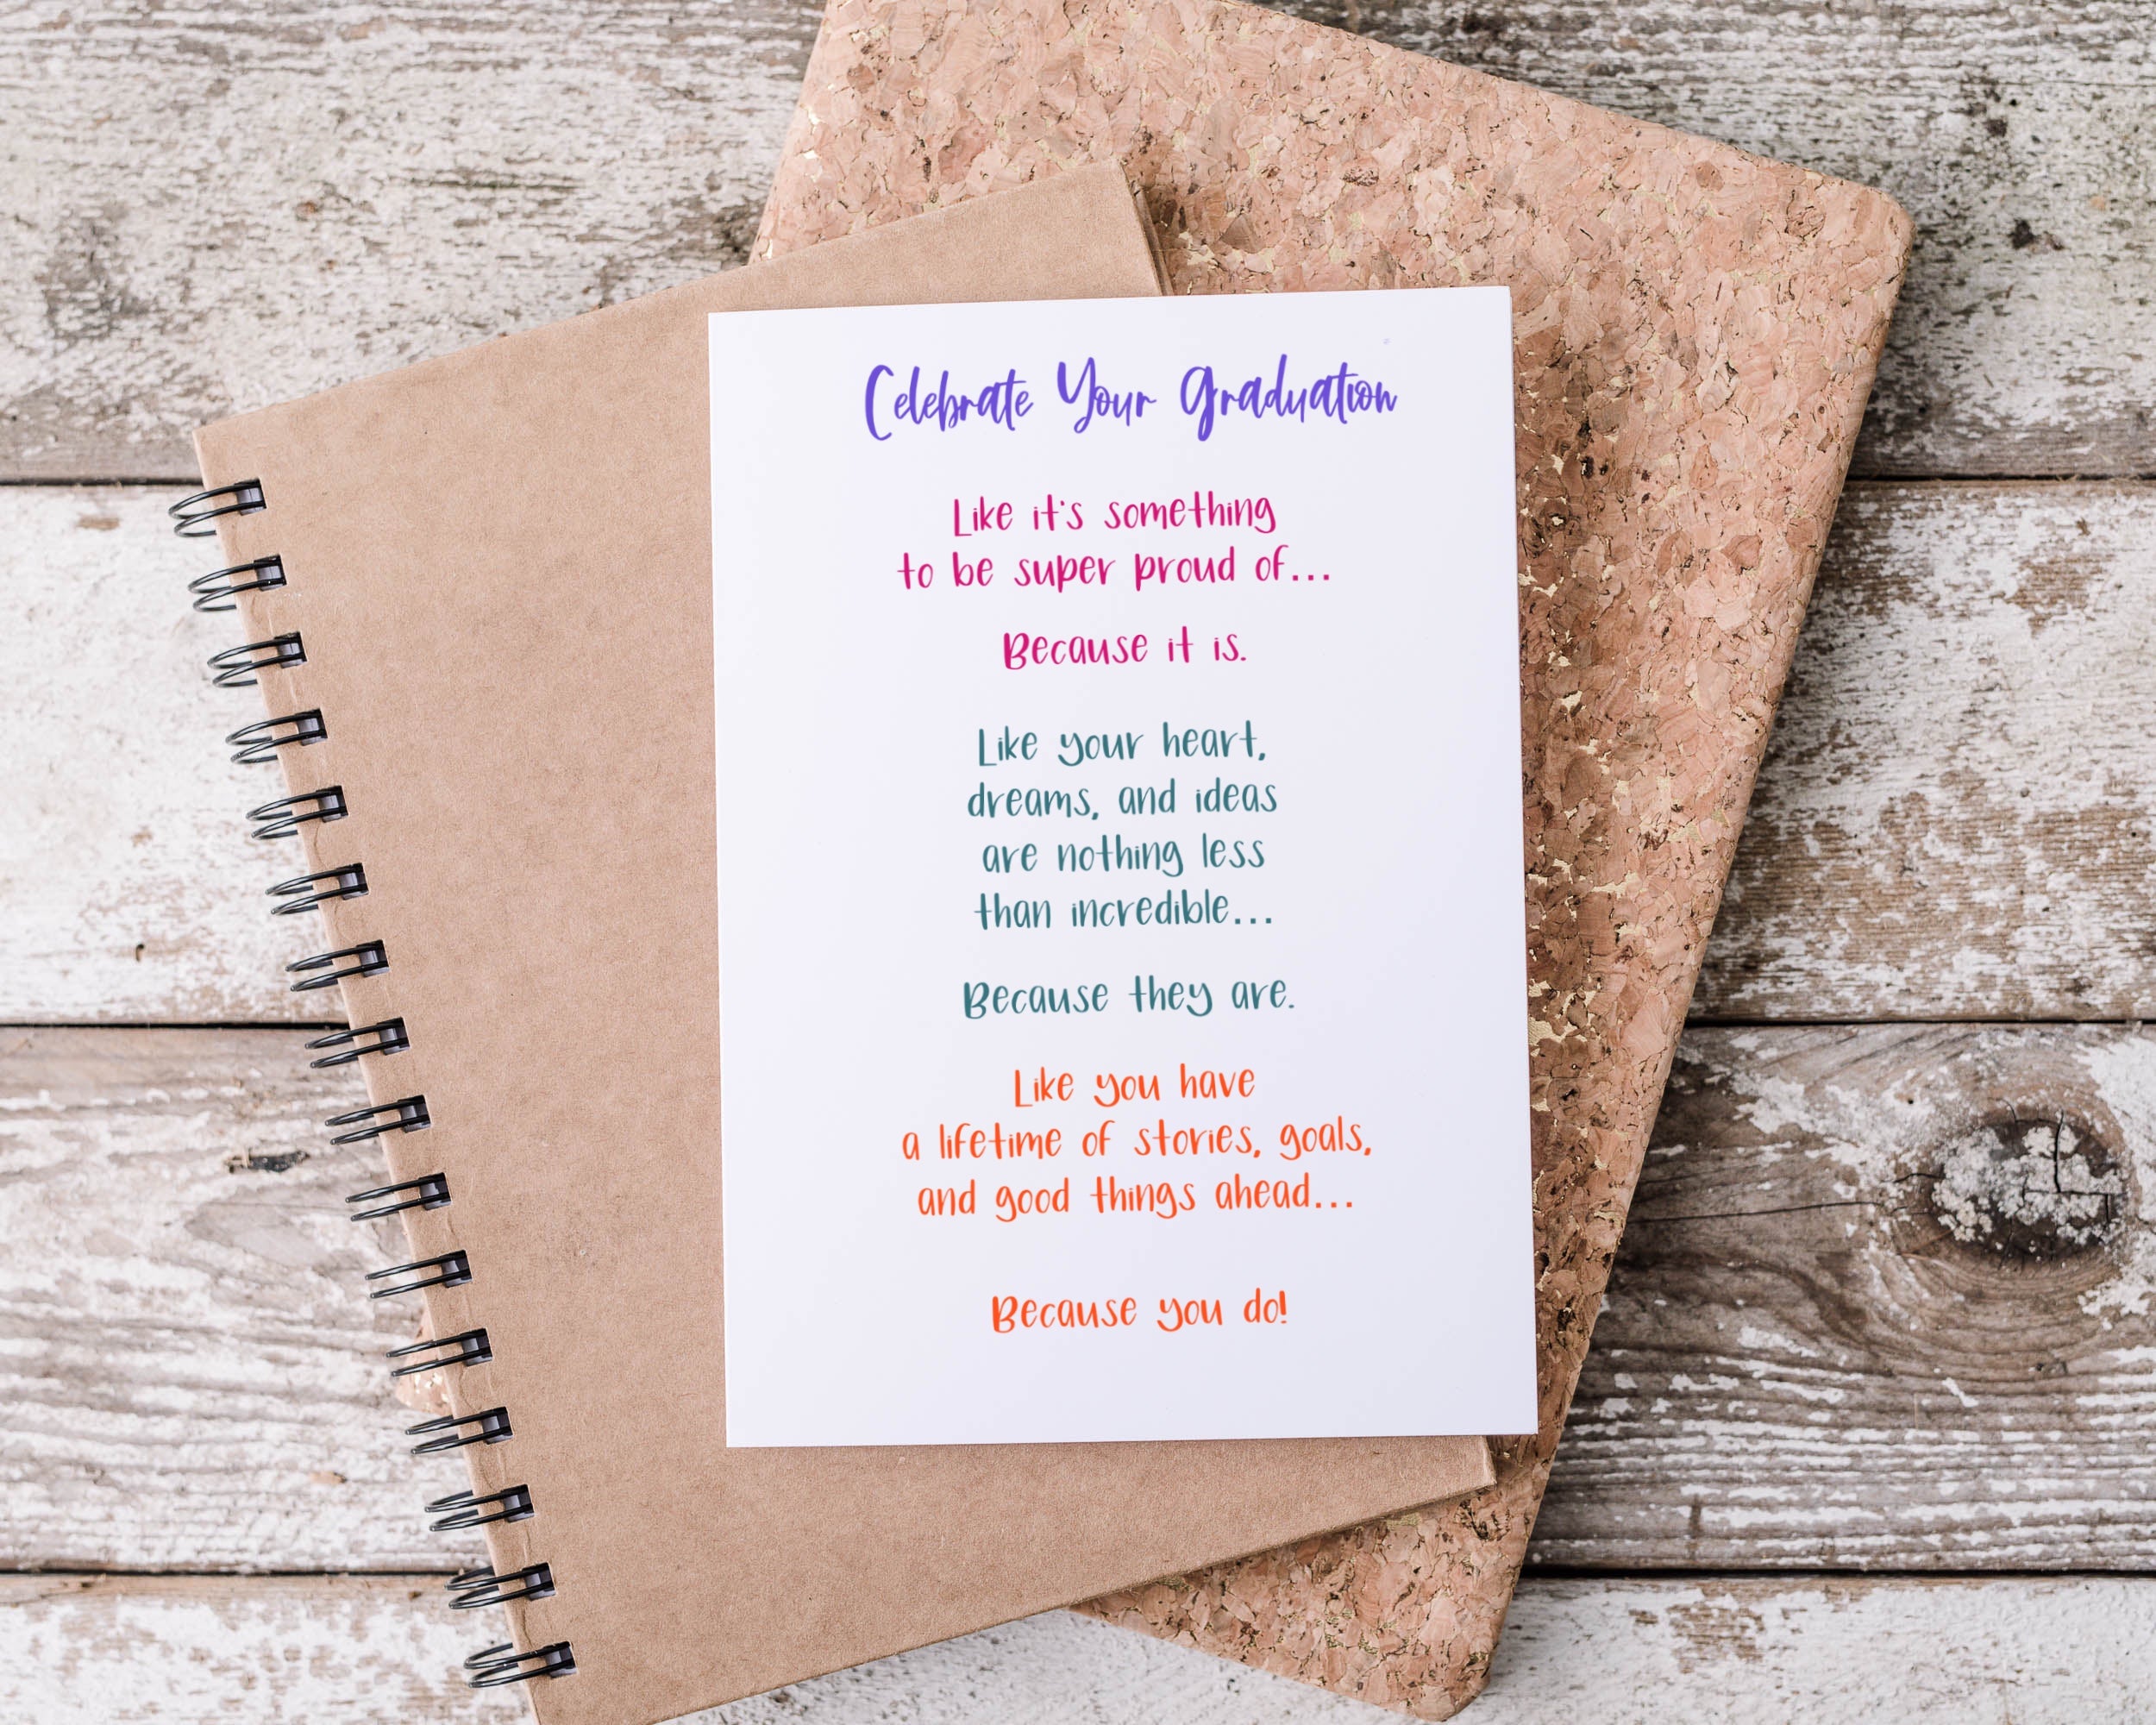 Celebrate Your Graduation
Like it's something
to be super proud of...
Because it is.
Like your heart,
dreams, and ideas
are nothing less
than incredible...
Because they are.
Like you have
a lifetime of stories, goals,
and good things ahead...
Because you do!